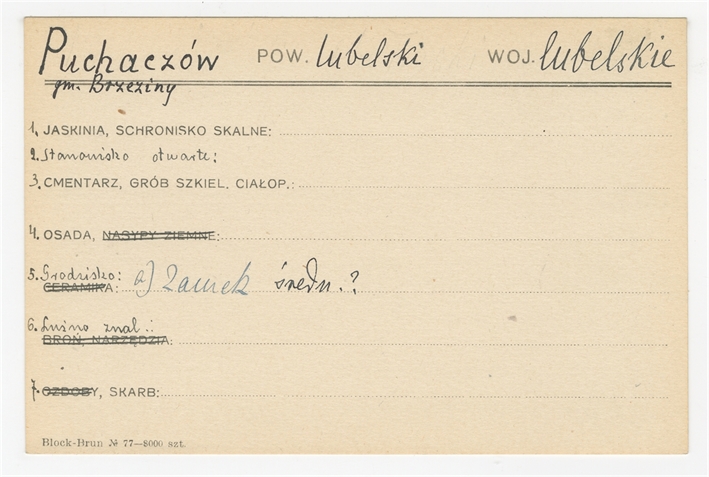 Puchaczów POW. lubelski WOJ. lubelskie
gm. Brzeziny
1. JASKINIA, SCHRONISKO SKALNE:
2. Stanowisko otwarte:
3. CMENTARZ, GRÓB SZKIEL. CIAŁOP.:
4. OSADA, NASYPY ZIEMNE:
5. Grodzisko: a) Zamek średn.?
CERAMIKA:
6. Luźno znal.:
BROŃ, NARZĘDZIA:
7. OZDOBY, SKARB:
Block-Brun № 77—8000 szt.